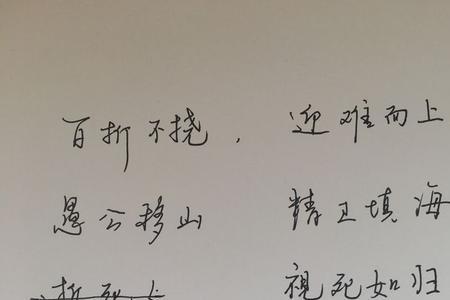 百折不挠， 迎难而上
愚公移山 精卫填海
視死如归